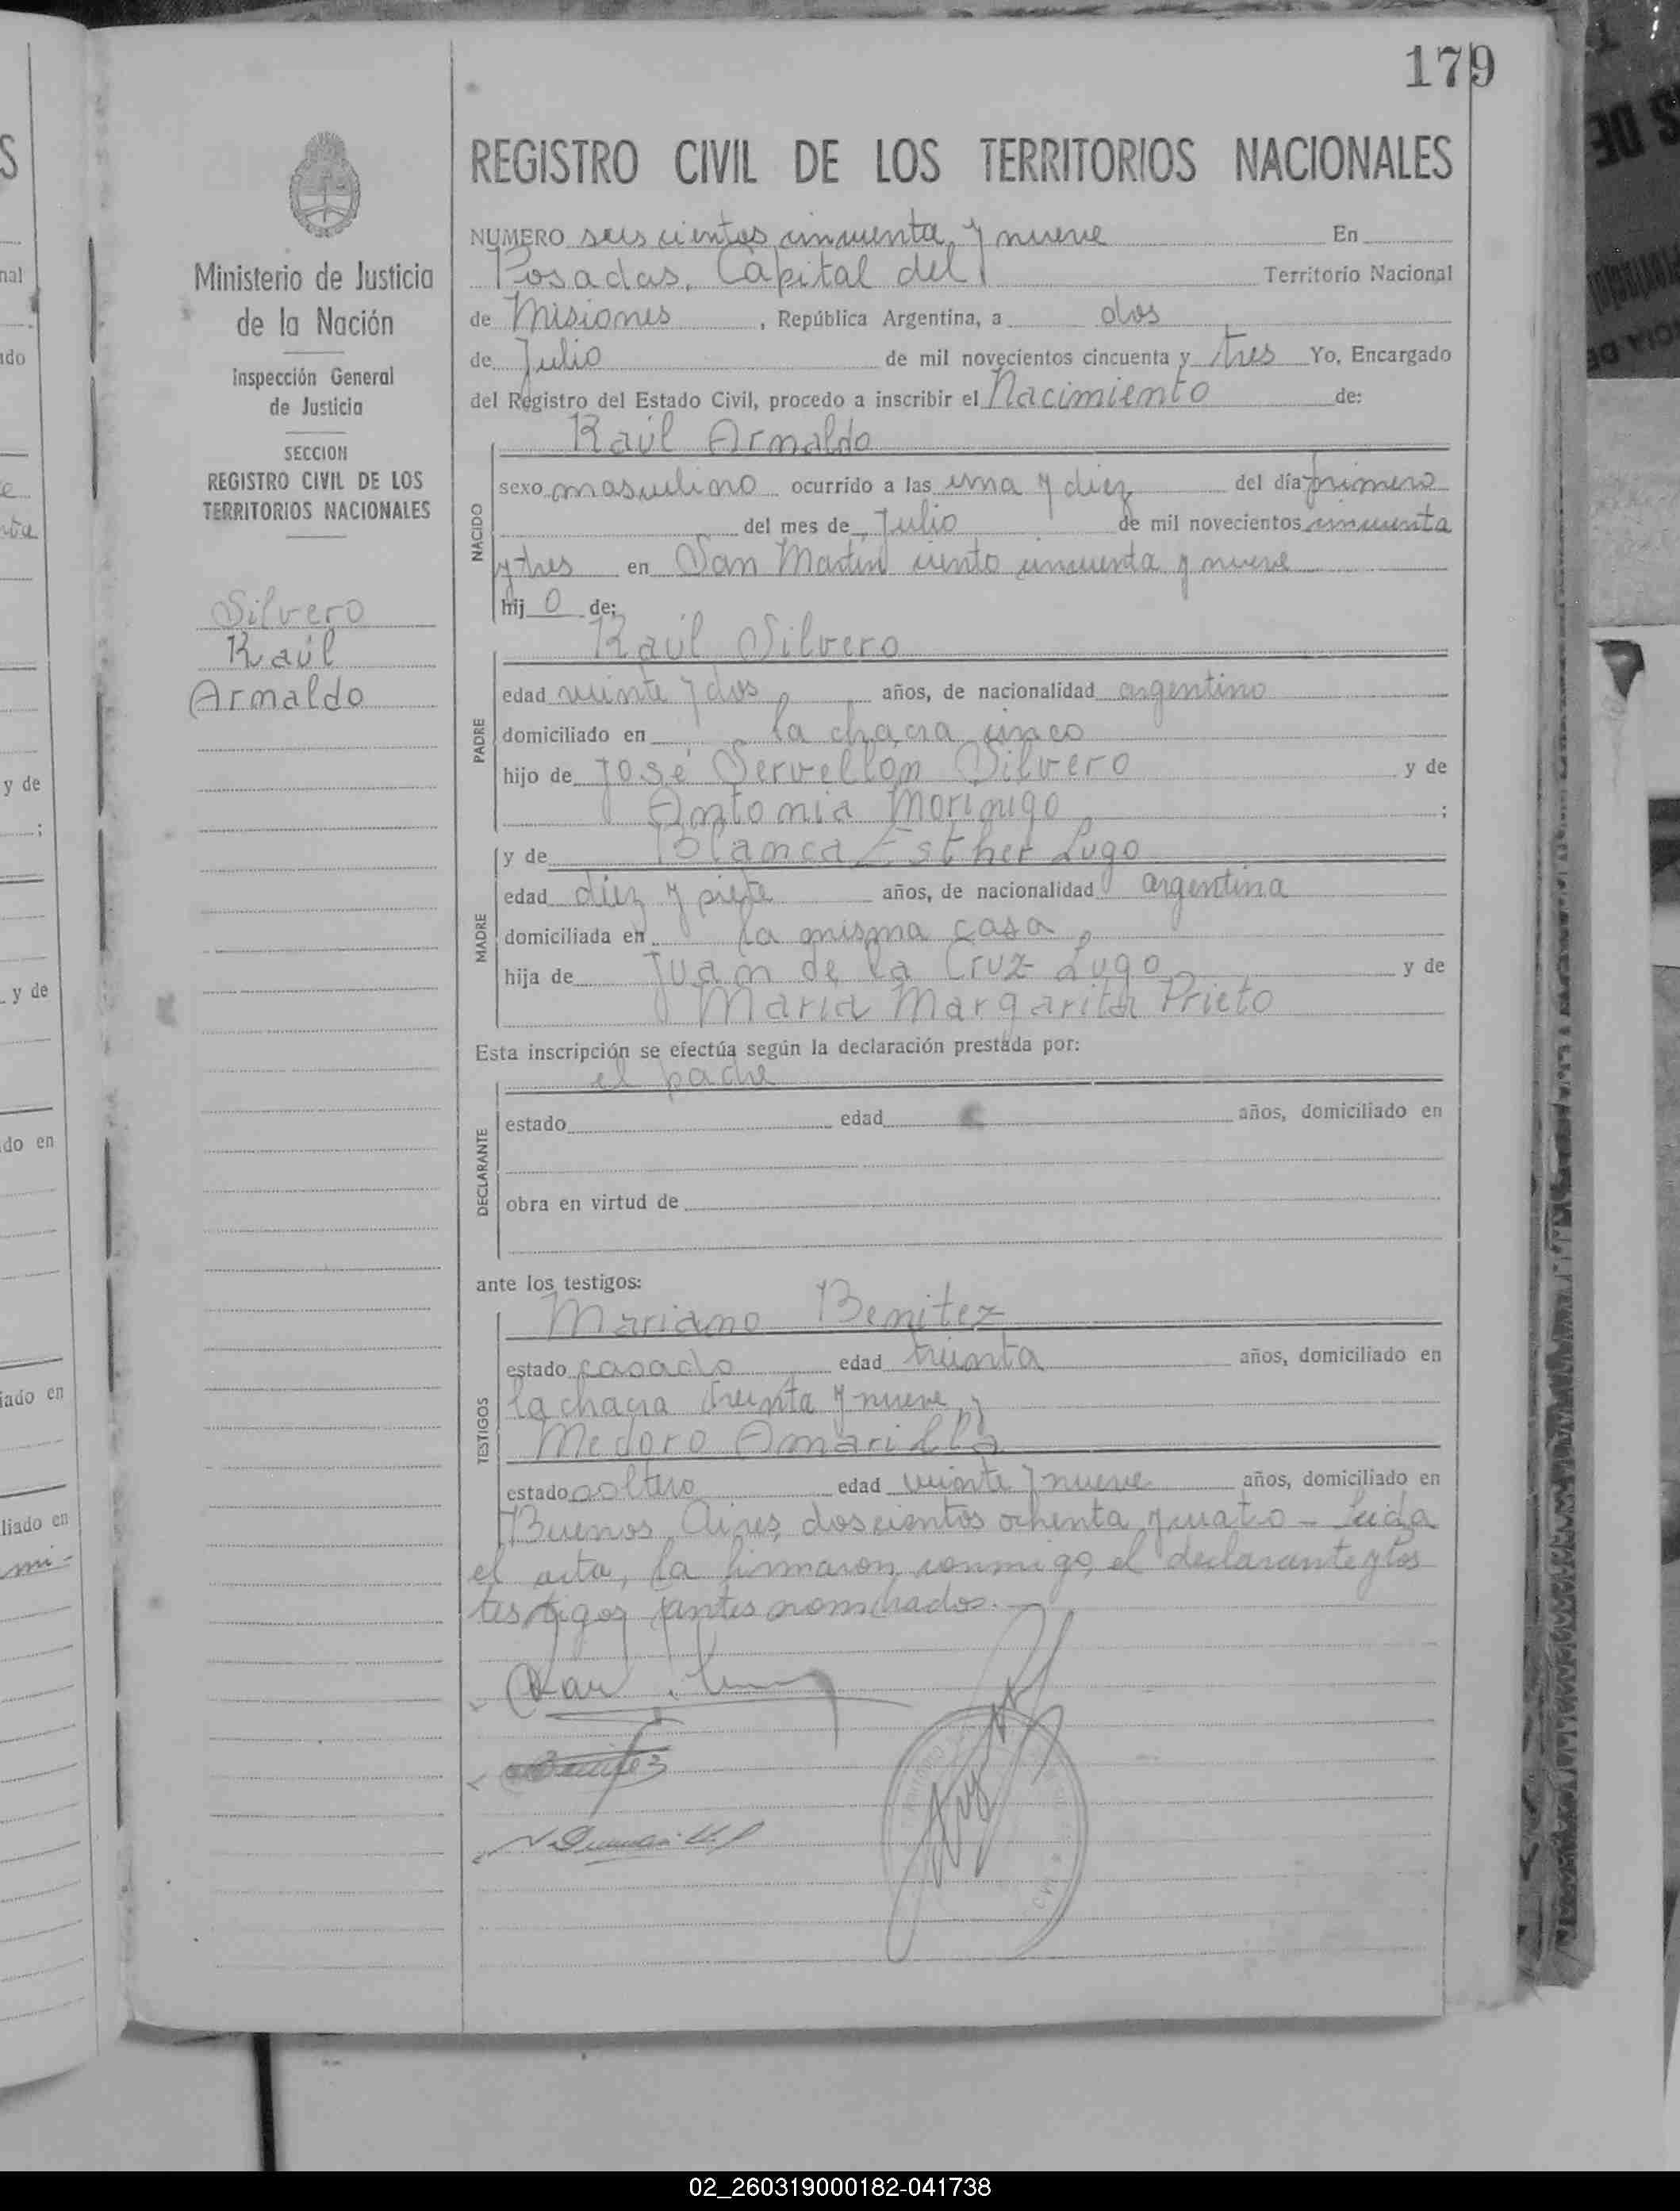 179
REGISTRO CIVIL DE LOS TERRITORIOS NACIONALES
Ministerio de Justicia
de la Nación
Inspección General
de Justicia
SECCION
REGISTRO CIVIL DE LOS
TERRITORIOS NACIONALES
Silvero
Raúl
Arnaldo
NUMERO seiscientos cincuenta y nueve En
Posadas, Capital del Territorio Nacional
de Misiones, República Argentina, a dos
de Julio de mil novecientos cincuenta y tres Yo, Encargado
del Registro del Estado Civil, procedo a inscribir el Nacimiento de:
Raúl Arnaldo
NACIDO
sexo masculino ocurrido a las una y diez del día primero
del mes de Julio de mil novecientos cincuenta
y tres en San Martín ciento cincuenta y nueve
hijo de:
Raúl Silvero
PADRE
edad veinte y dos años, de nacionalidad argentino
domiciliado en la chacra cinco
hijo de José Servellon Silvero y de
Antonia Morinigo ;
y de Blanca Esther Lugo
MADRE
edad diez y siete años, de nacionalidad argentina
domiciliada en la misma casa
hija de Juan de la Cruz Lugo y de
Maria Margarita Prieto
Esta inscripción se efectúa según la declaración prestada por:
el padre
DECLARANTE
estado edad años, domiciliado en
obra en virtud de
ante los testigos:
Mariano Benitez
TESTIGOS
estado casado edad treinta años, domiciliado en
la chacra treinta y nueve y
Medoro Amarilla
estado soltero edad veinte y nueve años, domiciliado en
Buenos Aires doscientos ochenta y cuatro - Leida
el acta, la firmaron conmigo, el declarante y los
testigos antes nombrados.
02_260319000182-041738